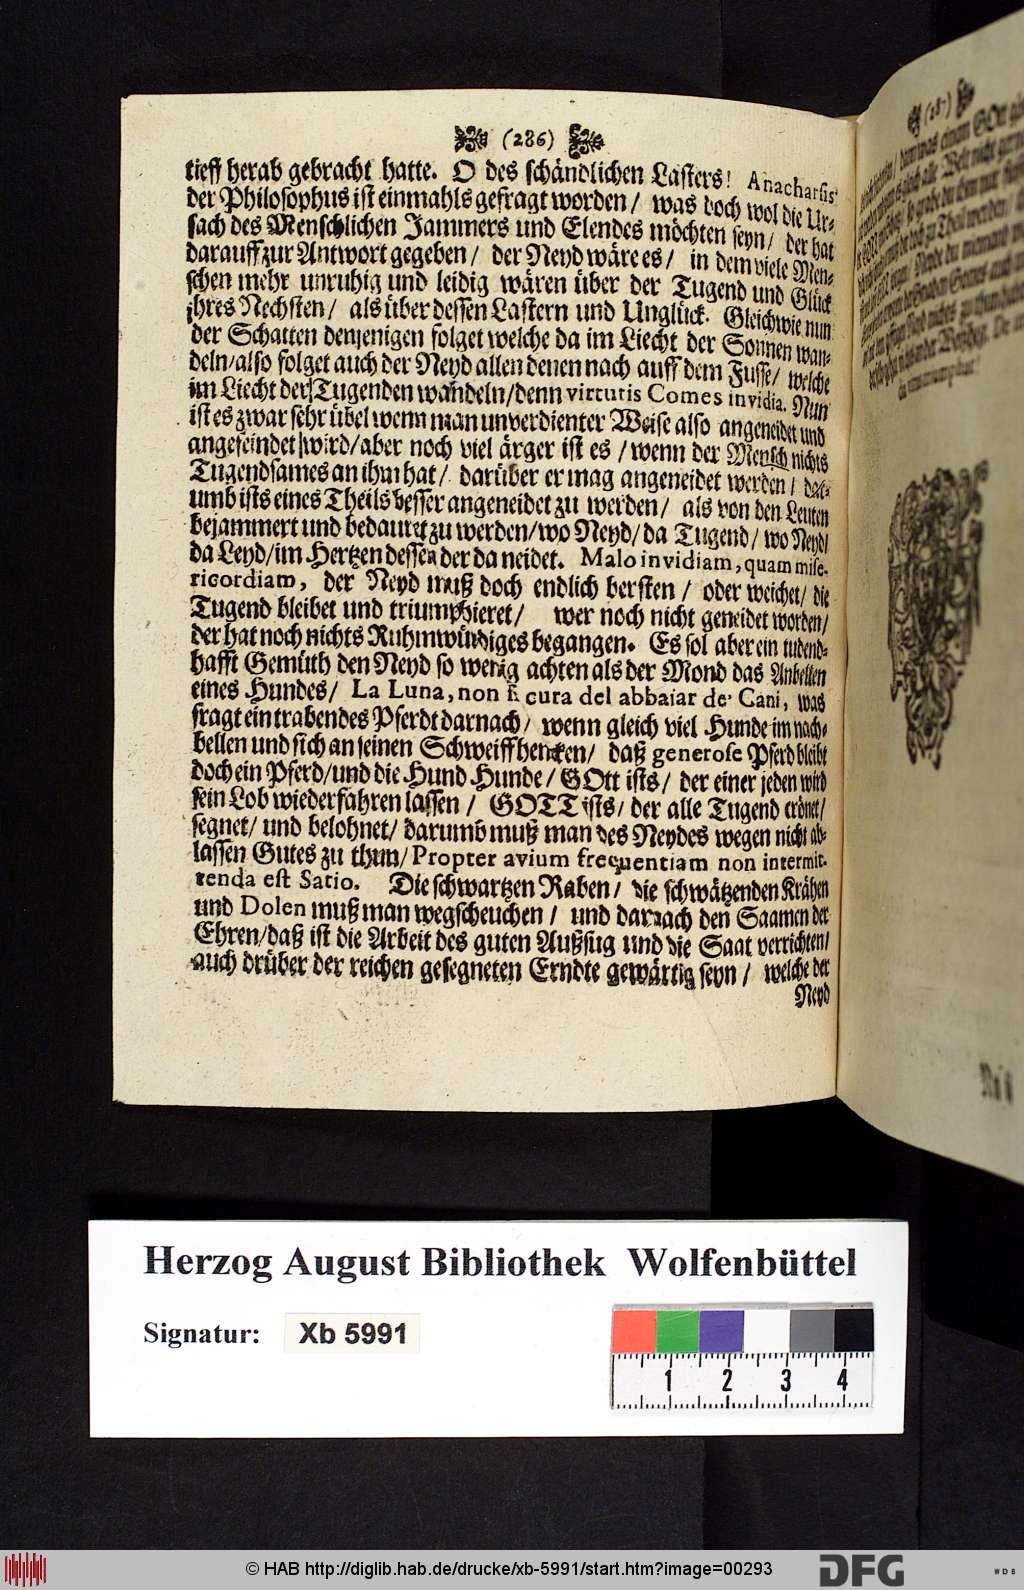 (286)
tieff herab gebracht hatte. O des schändlichen Lasters! Anacharsis
der Philosophus ist einmahls gefragt worden / was doch wol die Ur-
sach des Menschlichen Jammers und Elendes möchten seyn / der hat
darauff zur Antwort gegeben / der Neyd wäre es / in dem viele Men-
schen mehr unruhig und leidig wären über der Tugend und Glück
jhres Nechsten / als über dessen Lastern und Unglück. Gleichwie nun
der Schatten denjenigen folget welche da im Liecht der Sonnen wan-
deln / also folget auch der Neyd allen denen nach auff dem Fusse / welche
im Liecht der Tugenden wandeln / denn virtutis Comes invidia. Nun
ist es zwar sehr übel wenn man unverdienter Weise also angeneidet und
angefeindet wird / aber noch viel ärger ist es / wenn der Mensch nichts
Tugendsames an ihm hat / darüber er mag angeneidet werden / dar-
umb ists eines Theils besser angeneidet zu werden / als von den Leuten
bejammert und bedauret zu werden / wo Neyd / da Tugend / wo Neyd /
da Leyd / im Hertzen dessen der da neidet. Malo invidiam, quam mise-
ricordiam, der Neyd muß doch endlich bersten / oder weichet / die
Tugend bleibet und triumphieret / wer noch nicht geneidet worden /
der hat noch nichts Ruhmwürdiges begangen. Es sol aber ein tudend-
hafft Gemüth den Neyd so wenig achten als der Mond das Anbellen
eines Hundes / La Luna, non si cura del abbaiar de' Cani, was
fragt ein trabendes Pferdt darnach / wenn gleich viel Hunde im nach-
bellen und sich an seinen Schweiff hencken / daß generose Pferd bleibt
doch ein Pferd / und die Hund Hunde / GOtt ists / der einer jeden wird
sein Lob wiederfahren lassen / GOTT ists / der alle Tugend crönet /
segnet / und belohnet / darumb muß man des Neydes wegen nicht ab-
lassen Gutes zu thun / Propter avium frequentiam non intermit-
tenda est Satio. Die schwartzen Raben / die schwätzenden Krähen
und Dolen muß man wegscheuchen / und darnach den Saamen der
Ehren / daß ist die Arbeit des guten Außsug und die Saat verrichten /
auch drüber der reichen gesegneten Erndte gewärtig seyn / welche der
Neyd
(287)
Herzog August Bibliothek Wolfenbüttel
Signatur: Xb 5991
1 2 3 4
© HAB http://diglib.hab.de/drucke/xb-5991/start.htm?image=00293
DFG
WDB